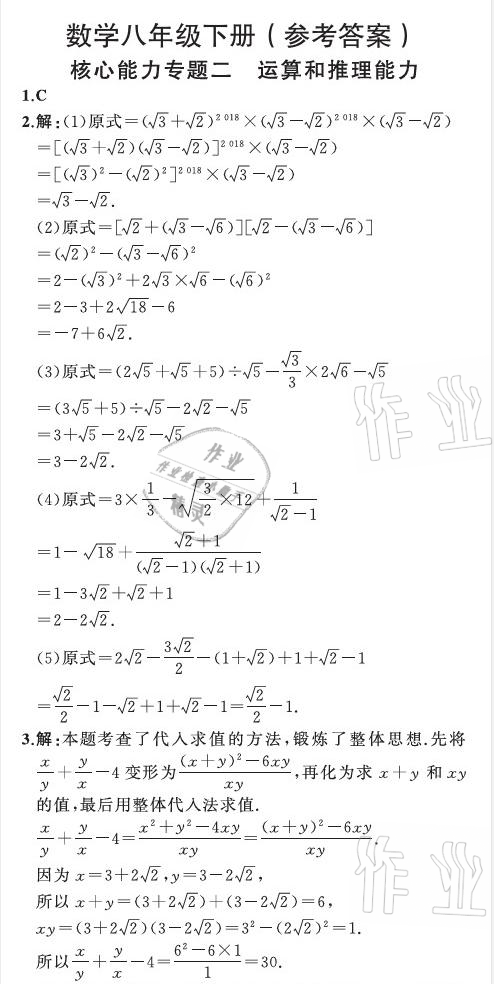 数学八年级下册(参考答案)
核心能力专题二 运算和推理能力
1.C
2.解:(1)原式=(√3+√2)²⁰¹⁸×(√3-√2)²⁰¹⁸×(√3-√2)
=[(√3+√2)(√3-√2)]²⁰¹⁸×(√3-√2)
=[(√3)²-(√2)²]²⁰¹⁸×(√3-√2)
=√3-√2.
(2)原式=[√2+(√3-√6)][√2-(√3-√6)]
=(√2)²-(√3-√6)²
=2-(√3)²+2√3×√6-(√6)²
=2-3+2√18-6
=-7+6√2.
(3)原式=(2√5+√5+5)÷√5-√3/3×2√6-√5
=(3√5+5)÷√5-2√2-√5
=3+√5-2√2-√5
=3-2√2.
(4)原式=3×1/3-√(3/2×12)+1/(√2-1)
=1-√18+(√2+1)/((√2-1)(√2+1))
=1-3√2+√2+1
=2-2√2.
(5)原式=2√2-3√2/2-(1+√2)+1+√2-1
=√2/2-1-√2+1+√2-1=√2/2-1.
3.解:本题考查了代入求值的方法,锻炼了整体思想.先将
x/y+y/x-4变形为((x+y)²-6xy)/xy,再化为求x+y和xy
的值,最后用整体代入法求值.
x/y+y/x-4=(x²+y²-4xy)/xy=((x+y)²-6xy)/xy.
因为x=3+2√2,y=3-2√2,
所以x+y=(3+2√2)+(3-2√2)=6,
xy=(3+2√2)(3-2√2)=3²-(2√2)²=1.
所以x/y+y/x-4=(6²-6×1)/1=30.
作业
作业
作业
精灵